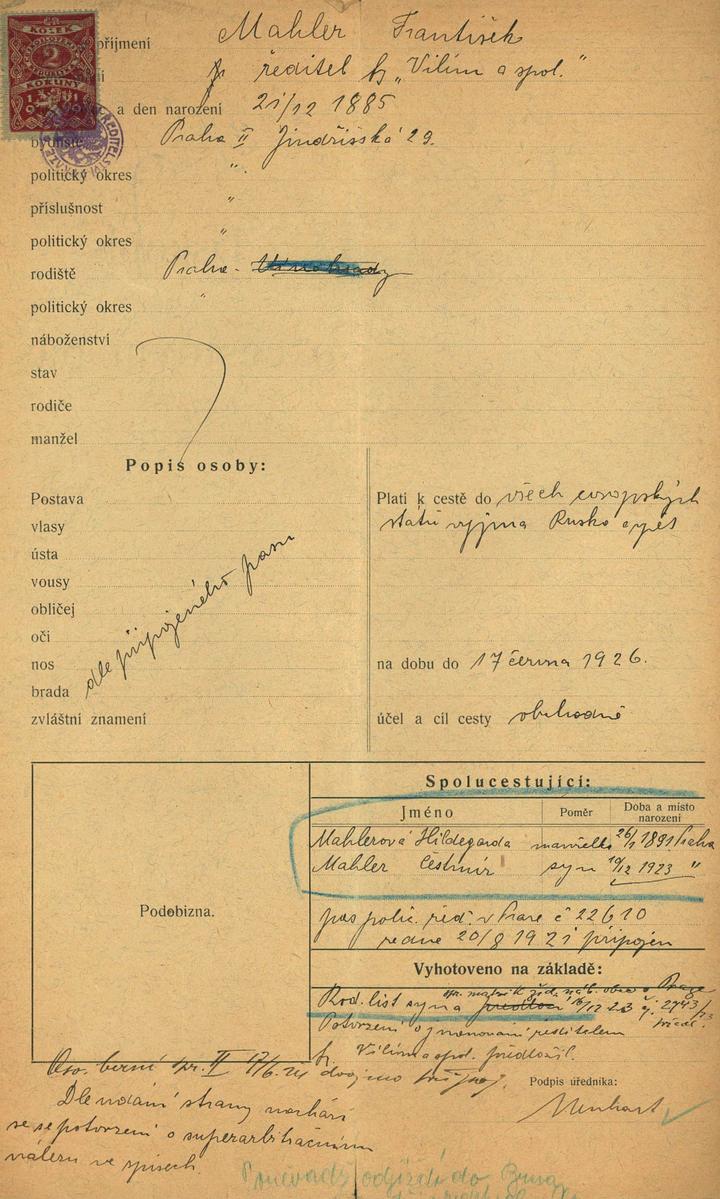 KOLEK
2
KORUNY
příjmení Mahler František
ředitel fy „Vilím a spol."
a den narození 21/12 1885
bydliště Praha II Jindřišská 29.
politický okres "
příslušnost "
politický okres "
rodiště Praha - Vinohrady
politický okres "
náboženství
stav
rodiče
manžel
Popis osoby:
Postava
vlasy
ústa
vousy
obličej
oči
nos
brada
zvláštní znamení
dle připojeného pasu
Platí k cestě do všech evropských
států vyjma Rusko a zpět
na dobu do 17 června 1926.
účel a cíl cesty obchodně
Podobizna.
Spolucestující:
Jméno Poměr Doba a místo narození
Mahlerová Hildegarda manželka 26/1 1891 Praha
Mahler Čestmír syn 19/12 1923 "
pas polic. řed. v Praze č 22610
ze dne 20/8 1921 připojen
Vyhotoveno na základě:
Rod. list syna 16/12 23
Potvrzení o jmenování ředitelem
fy. Vilím a spol. předložil.
Os. berní spr. II 17/6 24
Podpis úředníka:
Dle udání strany nachází
se se potvrzení o superarbitračním
nálezu ve spisech.
Poněvadž odjíždí do